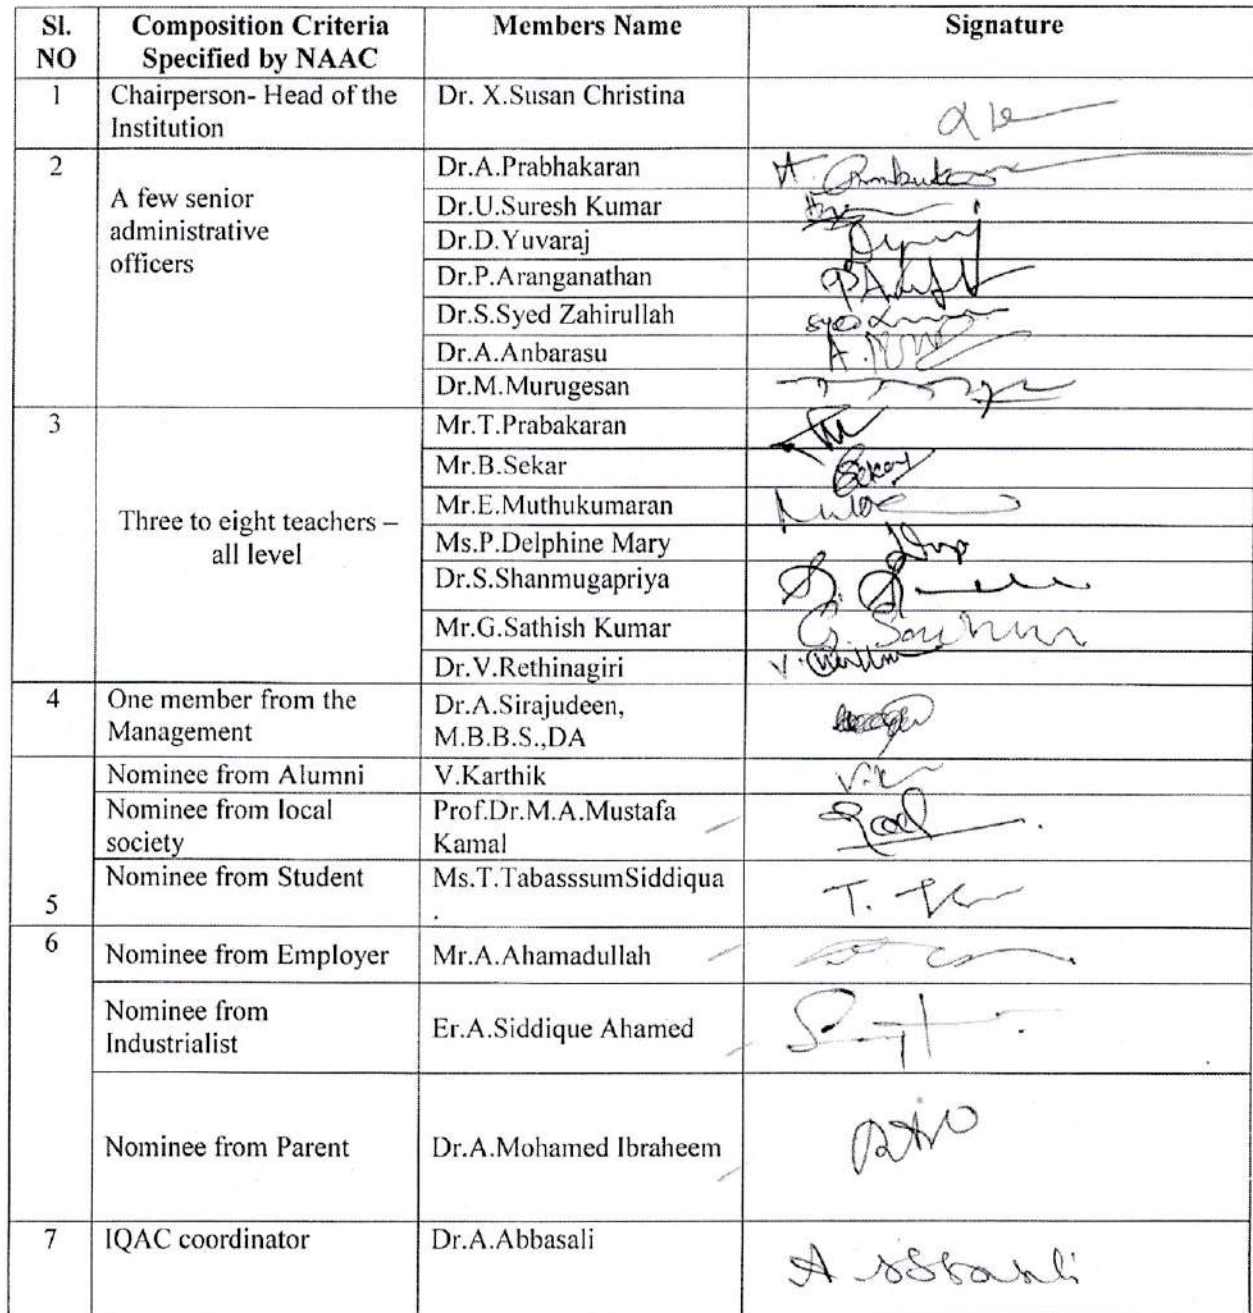 Sl. NO
Composition Criteria Specified by NAAC
Members Name
Signature
1
Chairperson- Head of the
Institution
Dr. X.Susan Christina
2
A few senior
administrative
officers
Dr.A.Prabhakaran
Dr.U.Suresh Kumar
Dr.D.Yuvaraj
Dr.P.Aranganathan
Dr.S.Syed Zahirullah
Dr.A.Anbarasu
Dr.M.Murugesan
3
Three to eight teachers –
all level
Mr.T.Prabakaran
Mr.B.Sekar
Sekar
Mr.E.Muthukumaran
Ms.P.Delphine Mary
Dr.S.Shanmugapriya
Mr.G.Sathish Kumar
Dr.V.Rethinagiri
4
One member from the
Management
Dr.A.Sirajudeen,
M.B.B.S.,DA
Nominee from Alumni
V.Karthik
Nominee from local
society
Prof.Dr.M.A.Mustafa
Kamal
5
Nominee from Student
Ms.T.TabasssumSiddiqua
.
6
Nominee from Employer
Mr.A.Ahamadullah
Nominee from
Industrialist
Er.A.Siddique Ahamed
Nominee from Parent
Dr.A.Mohamed Ibraheem
7
IQAC coordinator
Dr.A.Abbasali